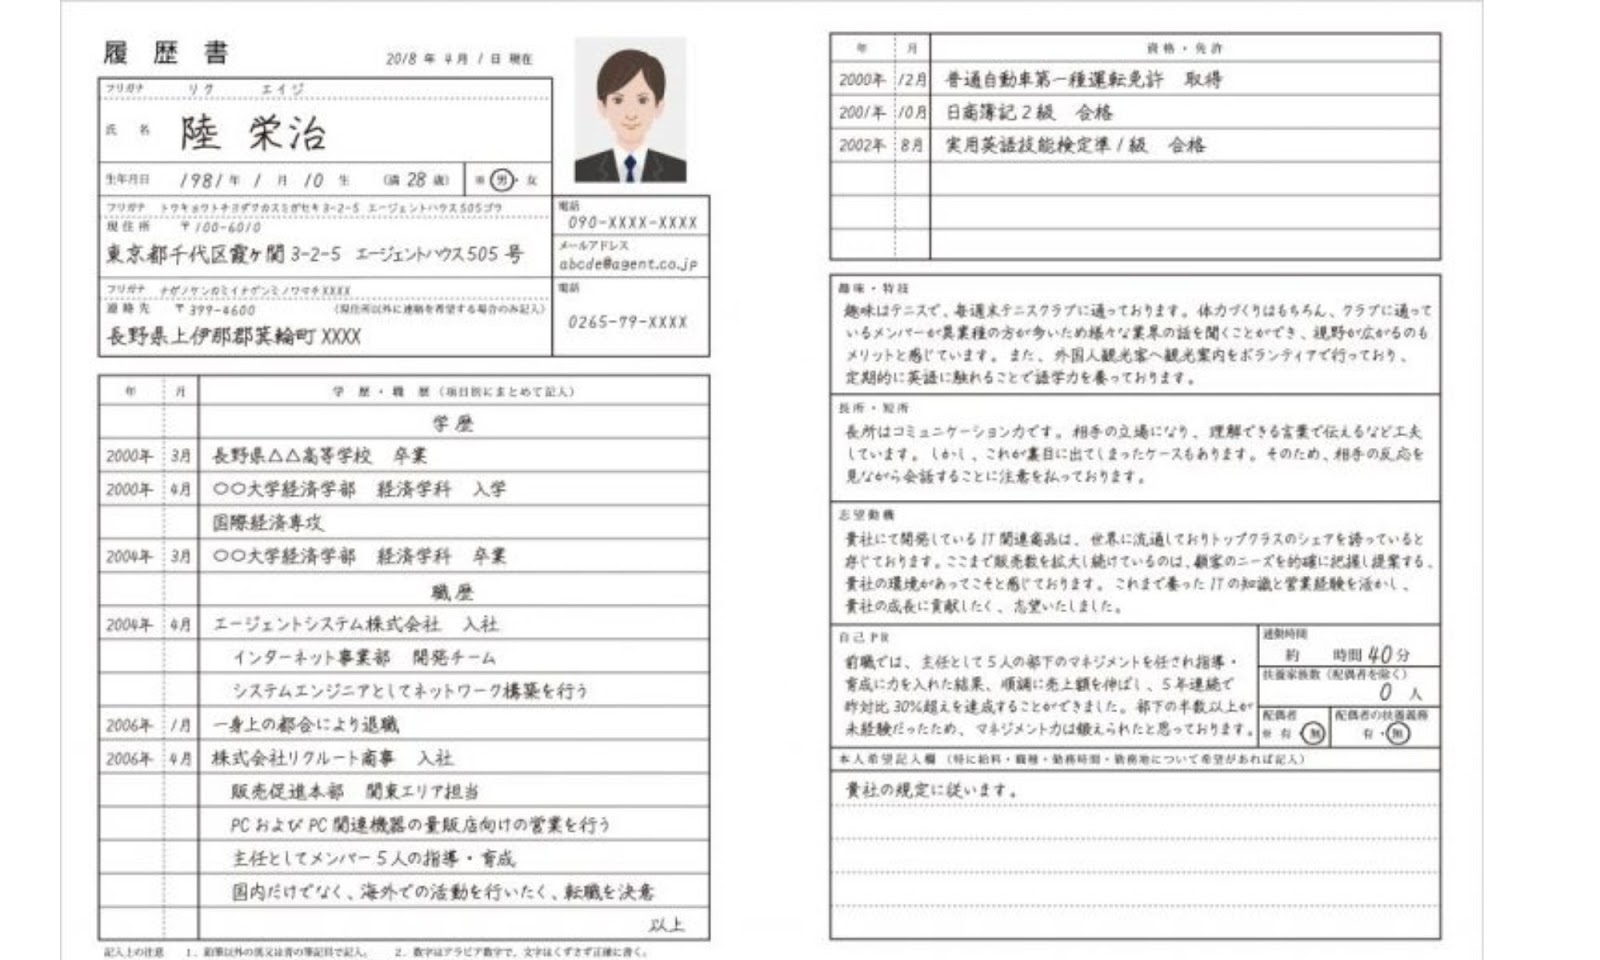 履歴書
2018年4月1日現在
フリガナ リク エイジ
氏名 陸 栄治
生年月日 1981年1月10生 (満28歳) ※ 男・女
フリガナ トウキョウトチヨダクカスミガセキ3-2-5 エージェントハウス505ゴウ
現住所 〒100-6010
東京都千代区霞ヶ関3-2-5 エージェントハウス505号
電話
090-XXXX-XXXX
メールアドレス
abcde@agent.co.jp
フリガナ ナガノケンカミイナグンミノワマチXXXX
連絡先 〒399-4600 (現住所以外に連絡を希望する場合のみ記入)
長野県上伊那郡箕輪町XXXX
電話
0265-79-XXXX
年 月 学歴・職歴(項目別にまとめて記入)
学歴
2000年 3月 長野県△△高等学校 卒業
2000年 4月 〇〇大学経済学部 経済学科 入学
国際経済専攻
2004年 3月 〇〇大学経済学部 経済学科 卒業
職歴
2004年 4月 エージェントシステム株式会社 入社
インターネット事業部 開発チーム
システムエンジニアとしてネットワーク構築を行う
2006年 1月 一身上の都合により退職
2006年 4月 株式会社リクルート商事 入社
販売促進本部 関東エリア担当
PCおよびPC関連機器の量販店向けの営業を行う
主任としてメンバー5人の指導・育成
国内だけでなく、海外での活動を行いたく、転職を決意
以上
記入上の注意 1. 鉛筆以外の黒又は青の筆記具で記入。 2. 数字はアラビア数字で、文字はくずさず正確に書く。
年 月 資格・免許
2000年 12月 普通自動車第一種運転免許 取得
2001年 10月 日商簿記2級 合格
2002年 8月 実用英語技能検定準1級 合格
趣味・特技
趣味はテニスで、毎週末テニスクラブに通っております。体力づくりはもちろん、クラブに通って
いるメンバーが異業種の方が多いため様々な業界の話を聞くことができ、視野が広がるのも
メリットと感じています。また、外国人観光客へ観光案内をボランティアで行っており、
定期的に英語に触れることで語学力を養っております。
長所・短所
長所はコミュニケーション力です。相手の立場になり、理解できる言葉で伝えるなど工夫
しています。しかし、これが裏目に出てしまったケースもあります。そのため、相手の反応を
見ながら会話することに注意を払っております。
志望動機
貴社にて開発しているIT関連商品は、世界に流通しておりトップクラスのシェアを誇っていると
存じております。ここまで販売数を拡大し続けているのは、顧客のニーズを的確に把握し提案する、
貴社の環境があってこそと感じております。これまで養ったITの知識と営業経験を活かし、
貴社の成長に貢献したく、志望いたしました。
自己PR
前職では、主任として5人の部下のマネジメントを任され指導・
育成に力を入れた結果、順調に売上額を伸ばし、5年連続で
昨対比30%超えを達成することができました。部下の半数以上が
未経験だったため、マネジメント力は鍛えられたと思っております。
通勤時間
約 時間40分
扶養家族数(配偶者を除く)
0人
配偶者
※ 有・無
配偶者の扶養義務
有・無
本人希望記入欄(特に給料・職種・勤務時間・勤務地について希望があれば記入)
貴社の規定に従います。